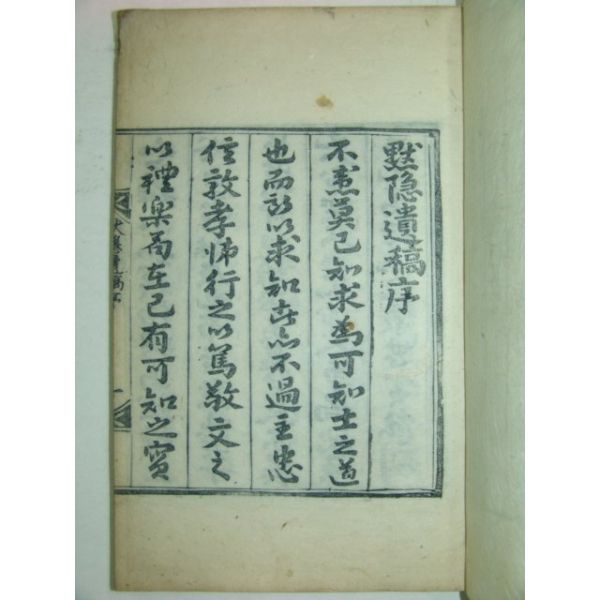 黙隐遺稿序
不患莫己知求為可知士之道
也而所以求知者亦不過主忠
信敦孝悌行之以篤敬文之
以禮樂而在己有可知之實